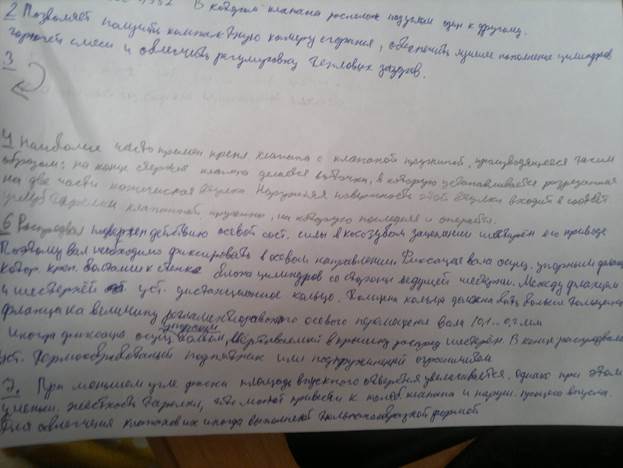 В котором клапана располож под углом один к другому.
2 Позволяет получить компактную камеру сгорания, обеспечить лучшее наполнение цилиндров
горючей смеси и облегчить регулировку тепловых зазоров.
3
4 Наиболее часто примен крепл клапана с клапаной пружиной, производящееся таким
образом: на конце стержня клапана делается выточка, в которую устанавливается разрезанная
на две части коническая втулка. Наружняя поверхность этой втулки входит в
тарелки клапанной пружины, на которую последняя и опирается.
6 Распредвал подвержен действию осевой сост. силы в косозубом зацеплении шестерен его привода
Поэтому вал необходимо фиксировать в осевом направлении. Фиксация вала осущ. упорным фланц
котор креп. болтами к стенке блока цилиндров со стороны ведущей шестерни. Между фланцем
и шестерней уст. дистанционное кольцо. Толщина кольца должна быть больше толщины
фланца на величину регламентированного осевого перемещения вала /0,1.. 0,2 мм
Иногда фиксацию осущ упорным болтом, ввертываемой в крышку распред шестерен. В конце распредвала
уст. термообработаный подпятник или подпружиненый ограничитель
7. При меньшем угле фаски площадь впускного отверстия увеличивается. однако при этом
уменьш. жесткость тарелки, что может привести к клапана и наруш. процесса впуска.
Для облегчения клапанов их иногда выполняют тюльпанообразной формой